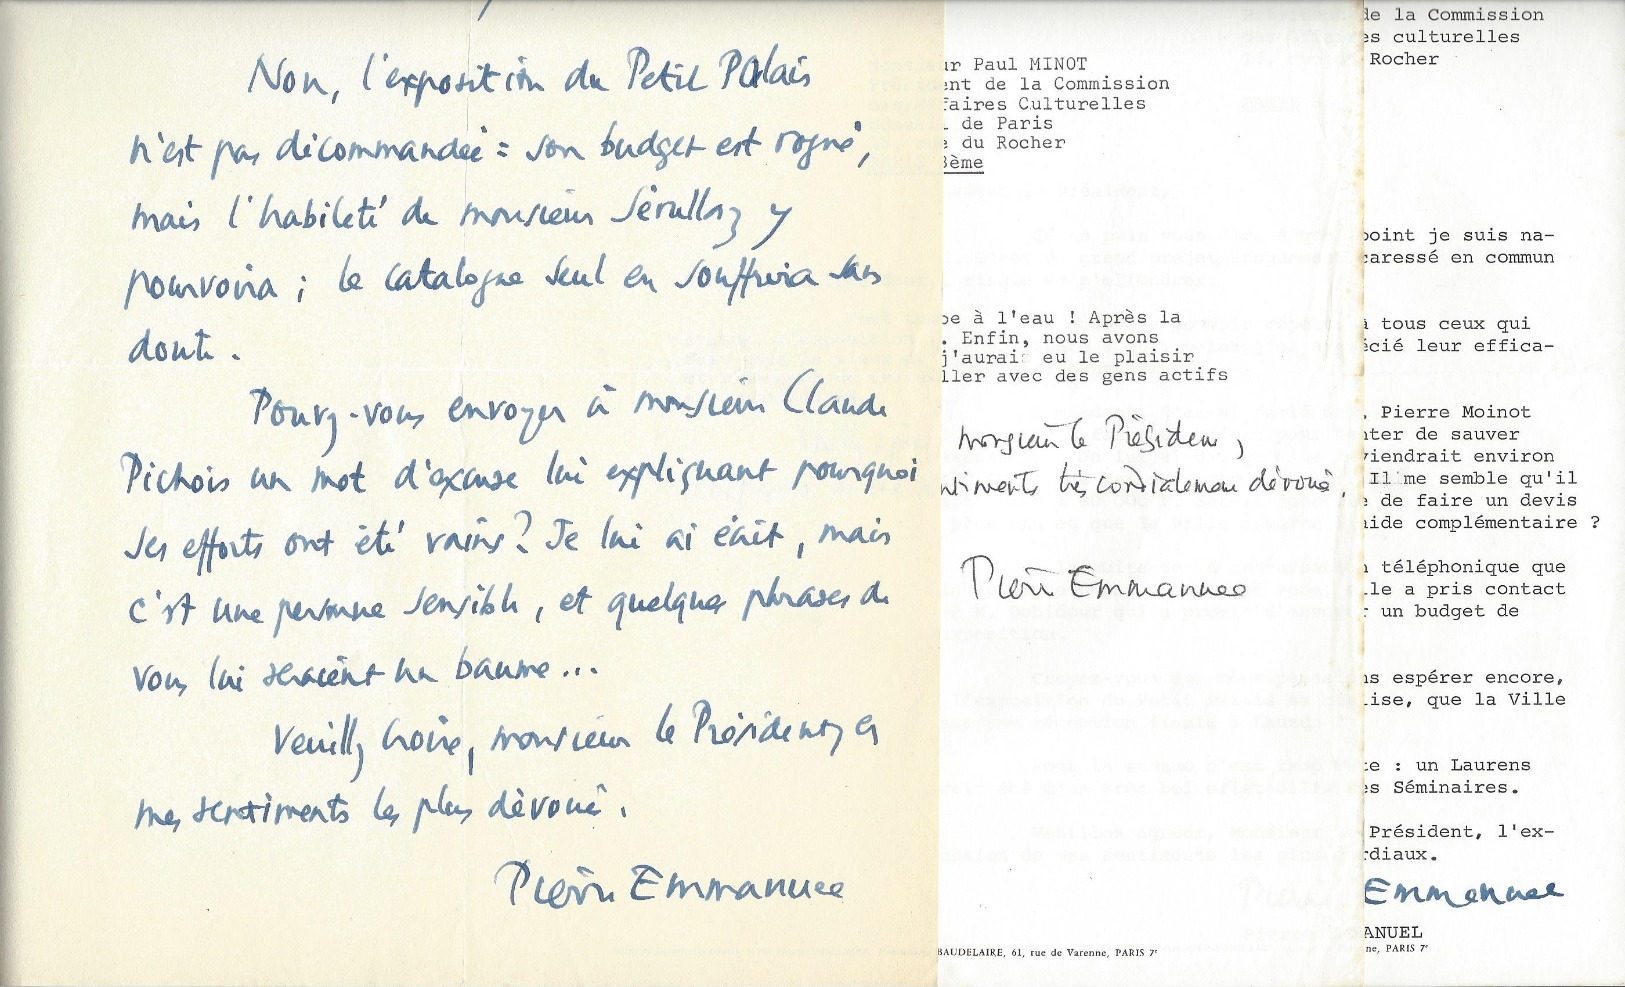 Non, l'exposition du Petit Palais
n'est pas décommandée : son budget est rogné,
mais l'habileté de monsieur Sérullaz y
pourvoira ; le catalogue seul en souffrira sans
doute.
Pouvez-vous envoyer à monsieur Claude
Pichois un mot d'excuse lui expliquant pourquoi
ses efforts ont été vains ? Je lui ai écrit, mais
c'est une personne sensible, et quelques phrases de
vous lui seraient un baume...
Veuillez croire, monsieur le Président, à
mes sentiments les plus dévoués.
Pierre Emmanuel
ur Paul MINOT
ent de la Commission
faires Culturelles
de Paris
e du Rocher
8ème
pe à l'eau ! Après la
. Enfin, nous avons
j'aurais eu le plaisir
ller avec des gens actifs
monsieur le Président,
ntiments très cordialement dévoués.
Pierre Emmanuel
BAUDELAIRE, 61, rue de Varenne, PARIS 7e
de la Commission
es culturelles
Rocher
point je suis na-
caressé en commun
à tous ceux qui
écié leur effica-
. Pierre Moinot
nter de sauver
viendrait environ
Il me semble qu'il
e de faire un devis
aide complémentaire ?
n téléphonique que
lle a pris contact
r un budget de
ns espérer encore,
lise, que la Ville
te : un Laurens
es Séminaires.
Président, l'ex-
rdiaux.
Emmanuel
ANUEL
ne, PARIS 7e